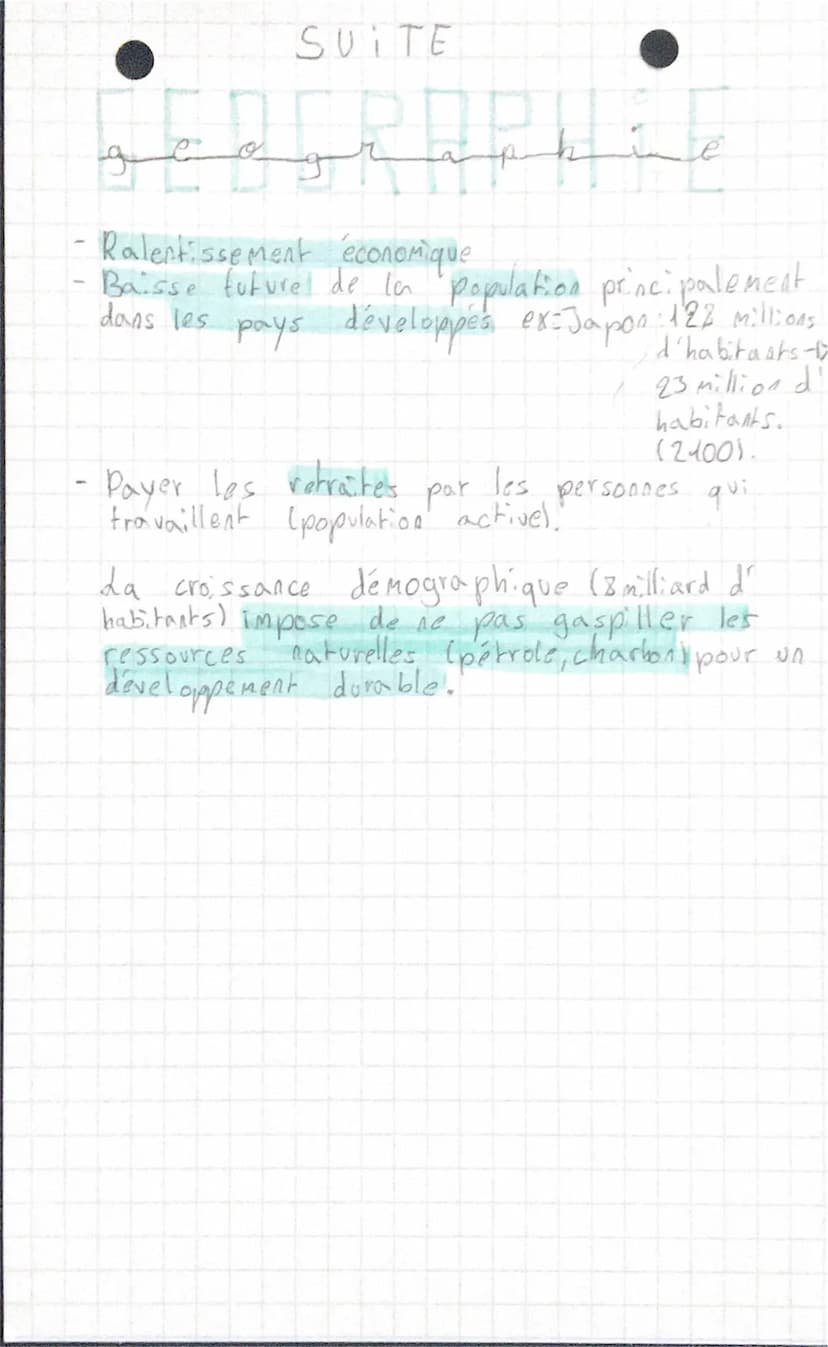 SUiTE
GEOGRAPHiE
geographie
- Ralentissement économique
- Baisse future de la population principalement
dans les pays développés ex=Japon:128 millions
d'habitants→
23 million d'
habitants.
(2100).
- Payer les retraites par les personnes qui
travaillent (population active).
La croissance démographique (8 milliard d'
habitants) impose de ne pas gaspiller les
ressources naturelles (pétrole, charbon) pour un
développement durable.